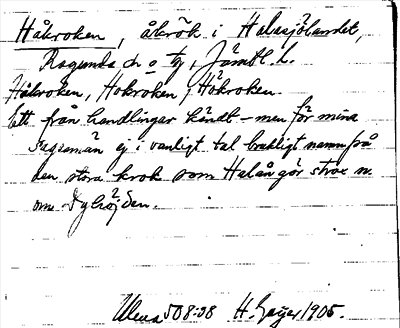 Håkroken, åkrök i Halasjölandet,
Ragunda sn o tg, Jämtl. l.
Håkroken, Hokroken, Hökroken.
Ett från handlingar kändt - men för mina
sagesmän ej i vanligt tal brukligt namn på
den stora krok som Halån gör strax n.
om Dyhöjden.
508:08 H. Geijer 1905.